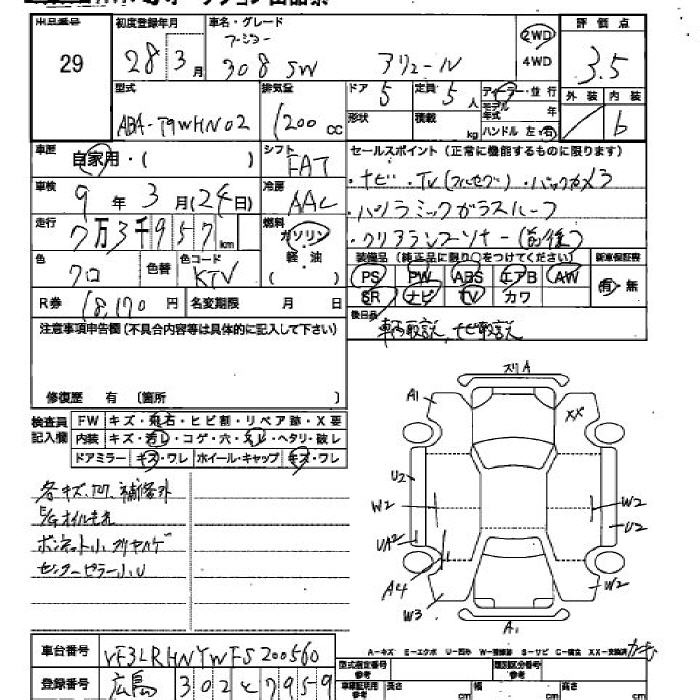 出品番号
29
初度登録年月
28年3月
車名・グレード
プジョー
308 SW アリュール
2WD
4WD
評価点
3.5
外装 内装
b
型式
ABA-T9WHN02
排気量
1200cc
ドア
5
定員
5人
形状
積載
kg
ディーラー・並行
モデル年式
年
ハンドル 左・右
車歴
自家用・( )
シフト
FAT
車検
9年3月(24日)
冷房
AAC
走行
7万3千957km
燃料
ガソリン
軽・油
( )
色
クロ
色替
色コード
KTV
R券
18,170円
名変期限 月 日
セールスポイント(正常に機能するものに限ります)
・ナビ・TV(フルセグ)・バックカメラ
・パノラミックガラスルーフ
・クリアランスソナー(前後)
装備品(純正品に限り○をつけてください)
新車保証書
PS PW ABS エアB AW
SR ナビ TV カワ
有・無
後日品
車両取説、ナビ取説
注意事項申告欄(不具合内容等は具体的に記入して下さい)
修復歴 有 〔箇所 〕
検査員記入欄
FW キズ・飛石・ヒビ割・リペア跡・X要
内装 キズ・汚レ・コゲ・穴・スレ・ヘタリ・破レ
ドアミラー キズ・ワレ ホイール・キャップ キズ・ワレ
各キズ、凹、補修外
E/Gオイルモレ
ボンネット小
センターピラー小U
スリA
A1
XX
U2
W2
UA2
A4
W3
W2
U2
W2
A1
A-キズ E-エクボ U-凹み W-補修跡 S-サビ C-腐食 XX-交換済
車台番号
VF3LRHNYWFS200560
登録番号
広島 302 と 7959
型式指定番号
参考
類別区分番号
参考
車庫証明用
参考
長さ cm
幅 cm
高さ cm